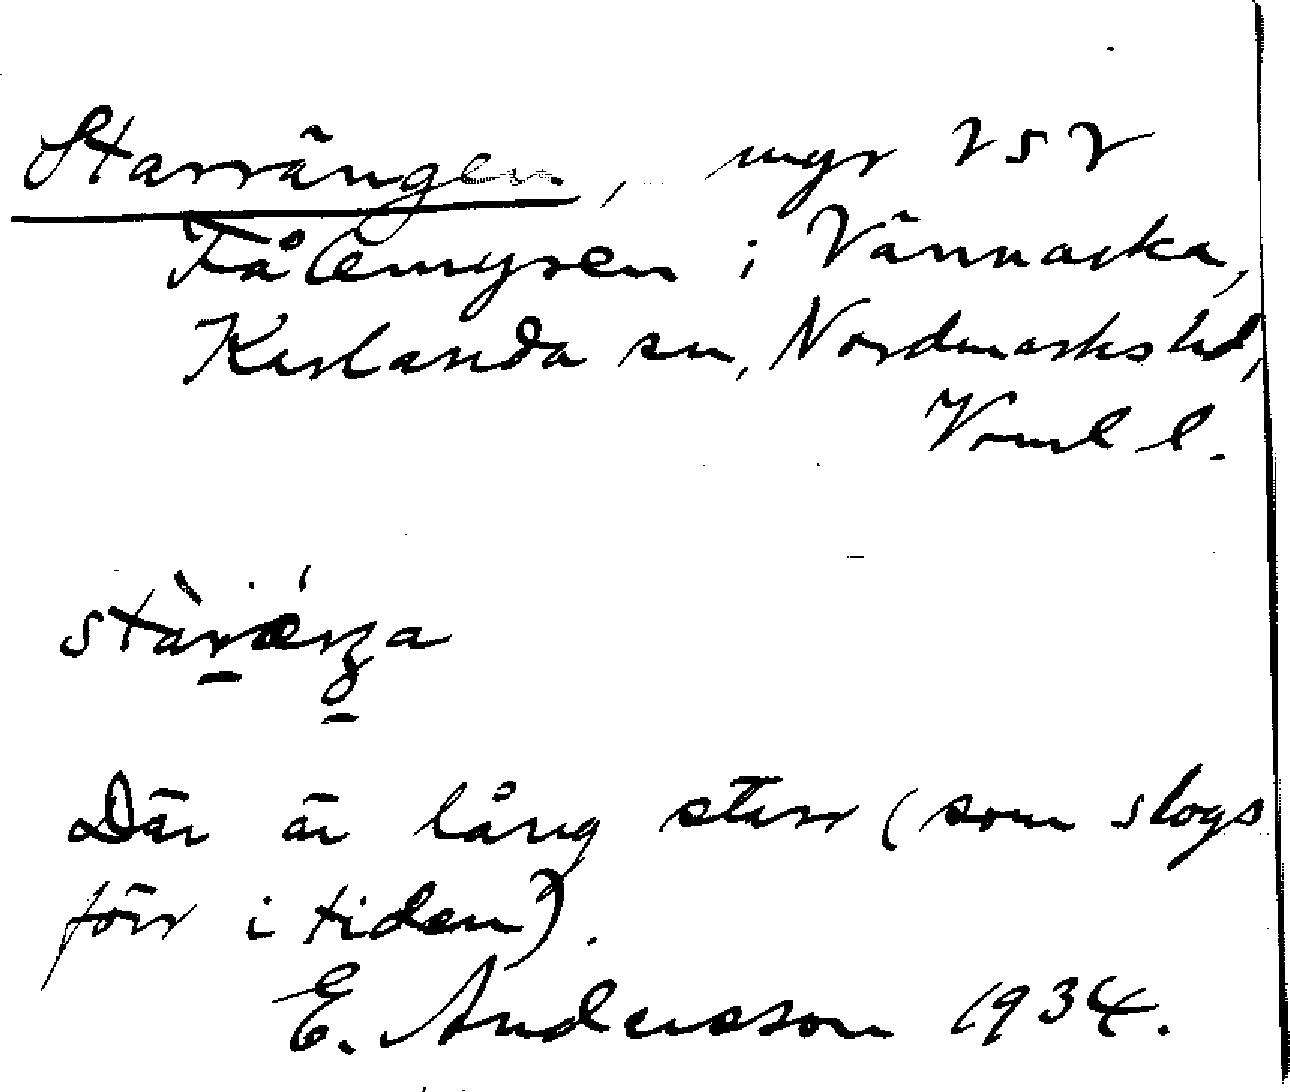 Starrängen, myr VSV
Fålemyren i Vännacka,
Karlanda sn, Nordmarks hd,
Värml l.
stàrǽŋa
Där är lång starr (som slogs
förr i tiden).
E. Andersson 1934.